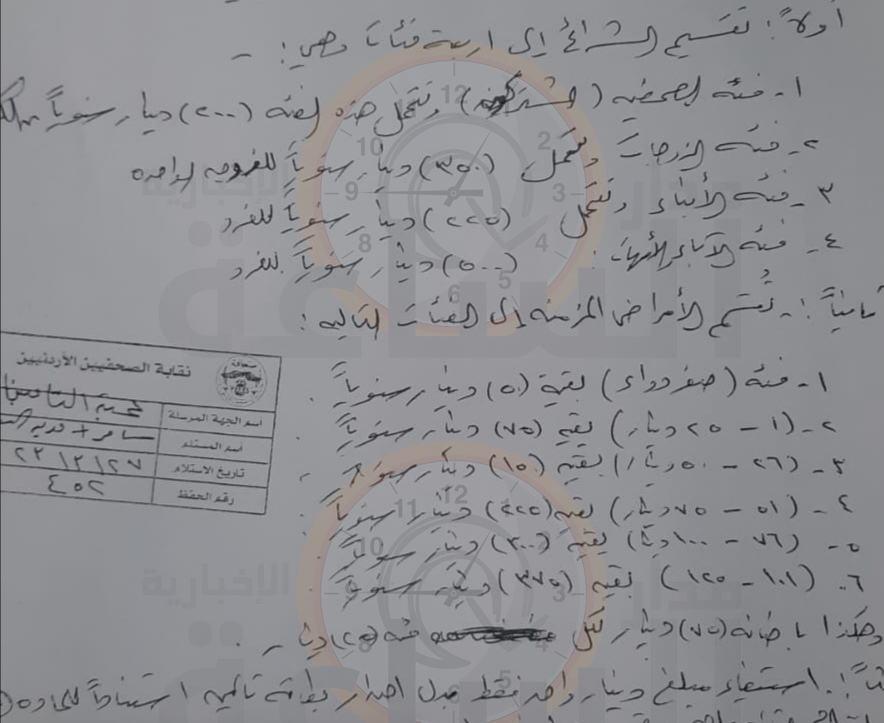 أولاً: تقسيم الشرائح إلى اربعة فئات وهي: -
١- فئة الصحفيين (المشتركين) وتتحمل هذه الفئة (٢٠٠) دينار سنوياً
٢- فئة الزوجات وتتحمل (٣٥٠) دينار سنوياً للزوجة الواحده
٣- فئة الأبناء وتتحمل (٢٢٥) دينار سنوياً للفرد
٤- فئة الآباء والأمهات: (٥٠٠) دينار سنوياً للفرد
ثانياً: - تُقسم الأمراض المزمنة إلى الفئات التاليه:
١- فئة (صفر دواء) بقيمة (٥٠) دينار سنوياً.
٢- (١ - ٢٥ دينار) بقيمة (٧٥) دينار سنوياً.
٣- (٢٦ - ٥٠ دينار) بقيمة (١٥٠) دينار سنوياً.
٤- (٥١ - ٧٥ دينار) بقيمة (٢٢٥) دينار سنوياً.
٥- (٧٦ - ١٠٠ دينار) بقيمة (٣٠٠) دينار سنوياً.
٦. (١٠١ - ١٢٥) بقيمة (٣٧٥) دينار سنوياً.
وهكذا باضافة (٧٥) دينار لكل فئة (٢٥) دينار.
استيفاء مبلغ دينار واحد فقط بدل اصدار بطاقة تأمين استناداً للمادة
نقابة الصحفيين الأردنيين
اسم الجهة المرسلة
اسم المستلم سامر +
تاريخ الاستلام ٢٠٢٣/١٢/٢٧
رقم الحفظ ٤٥٢
مدار الساعة الإخبارية
مدار الساعة الإخبارية